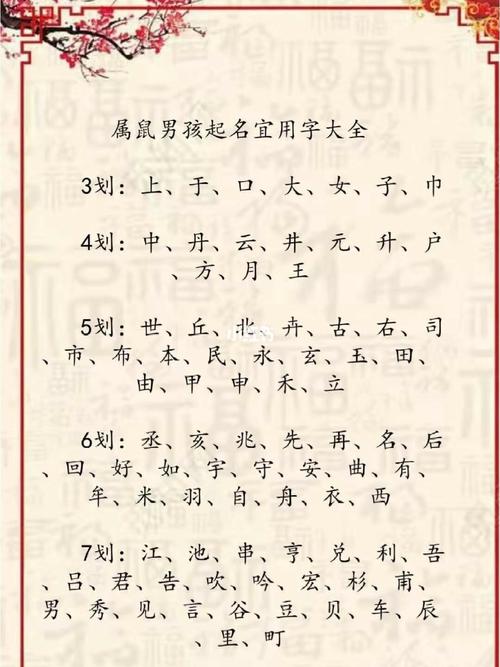 属鼠男孩起名宜用字大全
3划：上、于、口、大、女、子、巾
4划：中、丹、云、井、元、升、户
、方、月、王
5划：世、丘、北、卉、古、右、司
、市、布、本、民、永、玄、玉、田、
由、甲、申、禾、立
6划：丞、亥、兆、先、再、名、后
、回、好、如、宇、守、安、曲、有、
牟、米、羽、自、舟、衣、西
7划：江、池、串、亨、兑、利、吾
、吕、君、告、吹、吟、宏、杉、甫、
男、秀、见、言、谷、豆、贝、车、辰
、里、町